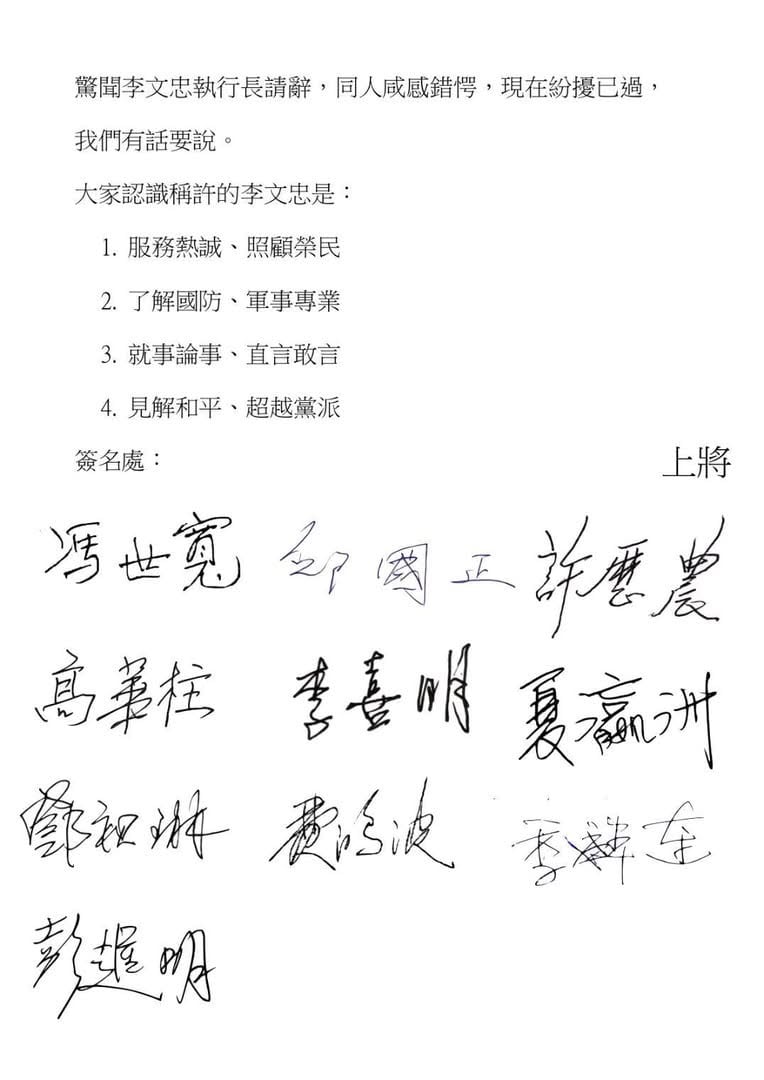 驚聞李文忠執行長請辭，同人咸感錯愕，現在紛擾已過，
我們有話要說。
大家認識稱許的李文忠是：
1. 服務熱誠、照顧榮民
2. 了解國防、軍事專業
3. 就事論事、直言敢言
4. 見解和平、超越黨派
簽名處： 上將
馮世寬 邱國正 許歷農
高華柱 李喜明 夏瀛洲
鄧祖琳 費鴻波 季麟連
彭進明